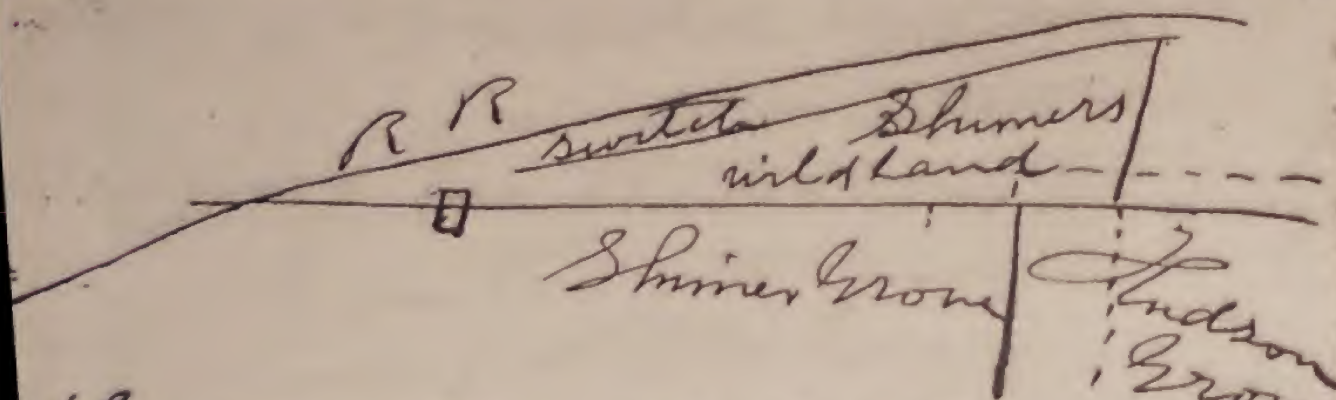 R R
switch Shimers
wild land
Shimer Grove
Hudson
Gro